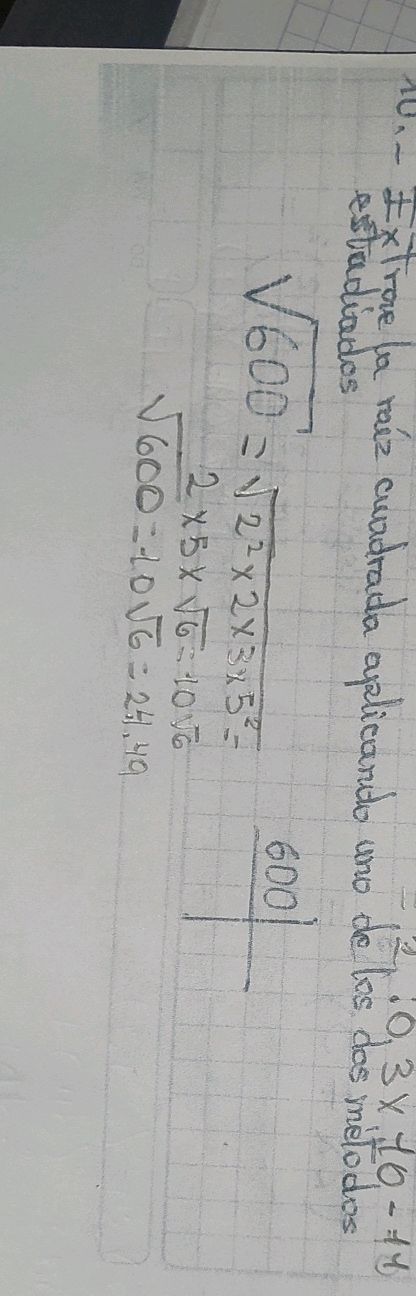 10.- Extrae la raíz cuadrada aplicando uno de los dos métodos
estudiados
√600 = √2² x 2 x 3 x 5² =
2 x 5 x √6 = 10√6
√600 = 10√6 = 24.49
600